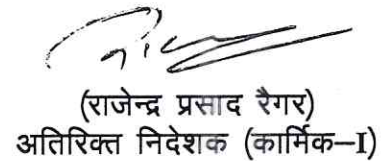 (राजेन्द्र प्रसाद रैगर)
अतिरिक्त निदेशक (कार्मिक–I)